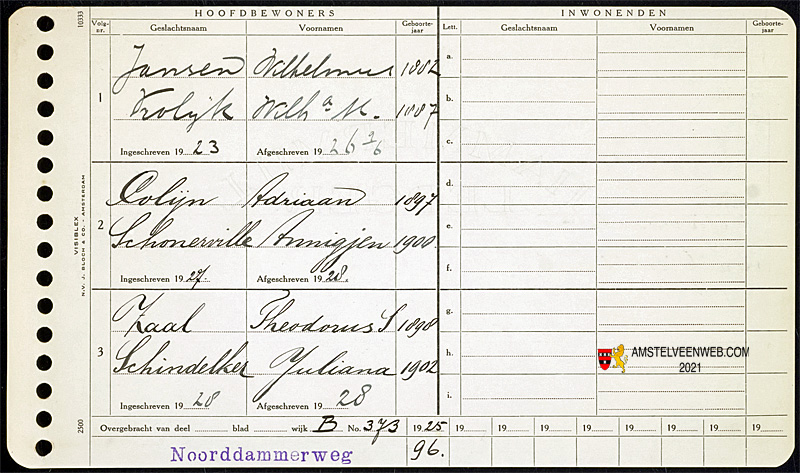 HOOFDBEWONERS INWONENDEN
Volg-nr. Geslachtsnaam Voornamen Geboorte-jaar Lett. Geslachtsnaam Voornamen Geboorte-jaar
1 Jansen Wilhelmus 1882 a.
Krolijk Wilh a M. 1887 b.
Ingeschreven 19 23 Afgeschreven 19 26 c.
2 Colijn Adriaan 1897 d.
Schonerville Annigjen 1900. e.
Ingeschreven 19 27. Afgeschreven 19 28. f.
3 Zaal Theodorus S 1898 g.
Schindelker Juliana 1902 h.
Ingeschreven 19 28 Afgeschreven 19 28 i.
Overgebracht van deel blad wijk B No. 373 19 25 19 19 19 19 19 19 19 19
Noorddammerweg 96.
10333
VISIBLEX
N.V. J. BLOCH & CO. - AMSTERDAM
2500
AMSTELVEENWEB.COM
2021